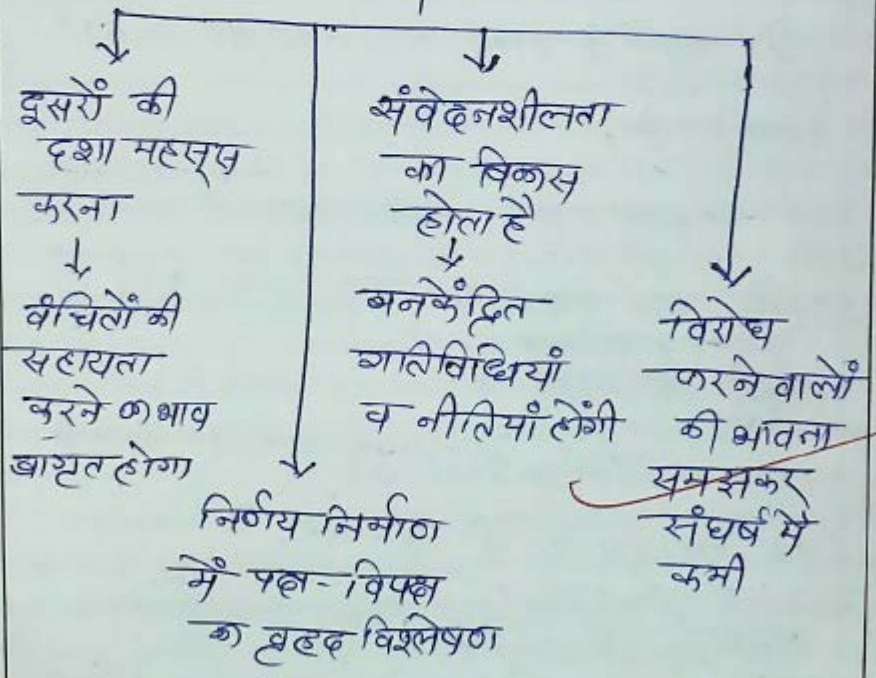 दूसरों की
दशा महसूस
करना
वंचितों की
सहायता
करने का भाव
जागृत होगा
निर्णय निर्माण
में पक्ष-विपक्ष
का वृहद विश्लेषण
संवेदनशीलता
का विकास
होता है
जनकेंद्रित
गतिविधियां
व नीतियां होंगी
विरोध
करने वालों
की भावना
समझकर
संघर्ष में
कमी